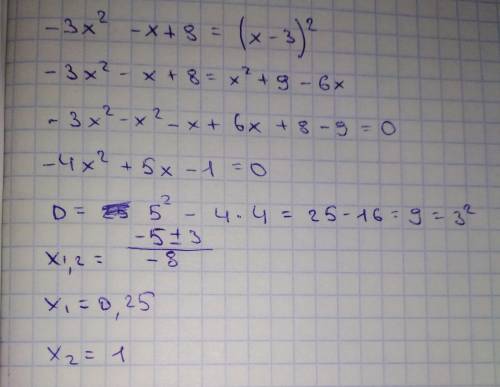 -3x² - x + 8 = (x - 3)²
-3x² - x + 8 = x² + 9 - 6x
-3x² - x² - x + 6x + 8 - 9 = 0
-4x² + 5x - 1 = 0
D = 5² - 4·4 = 25 - 16 = 9 = 3²
x₁,₂ = (-5 ± 3)/(-8)
x₁ = 0,25
x₂ = 1